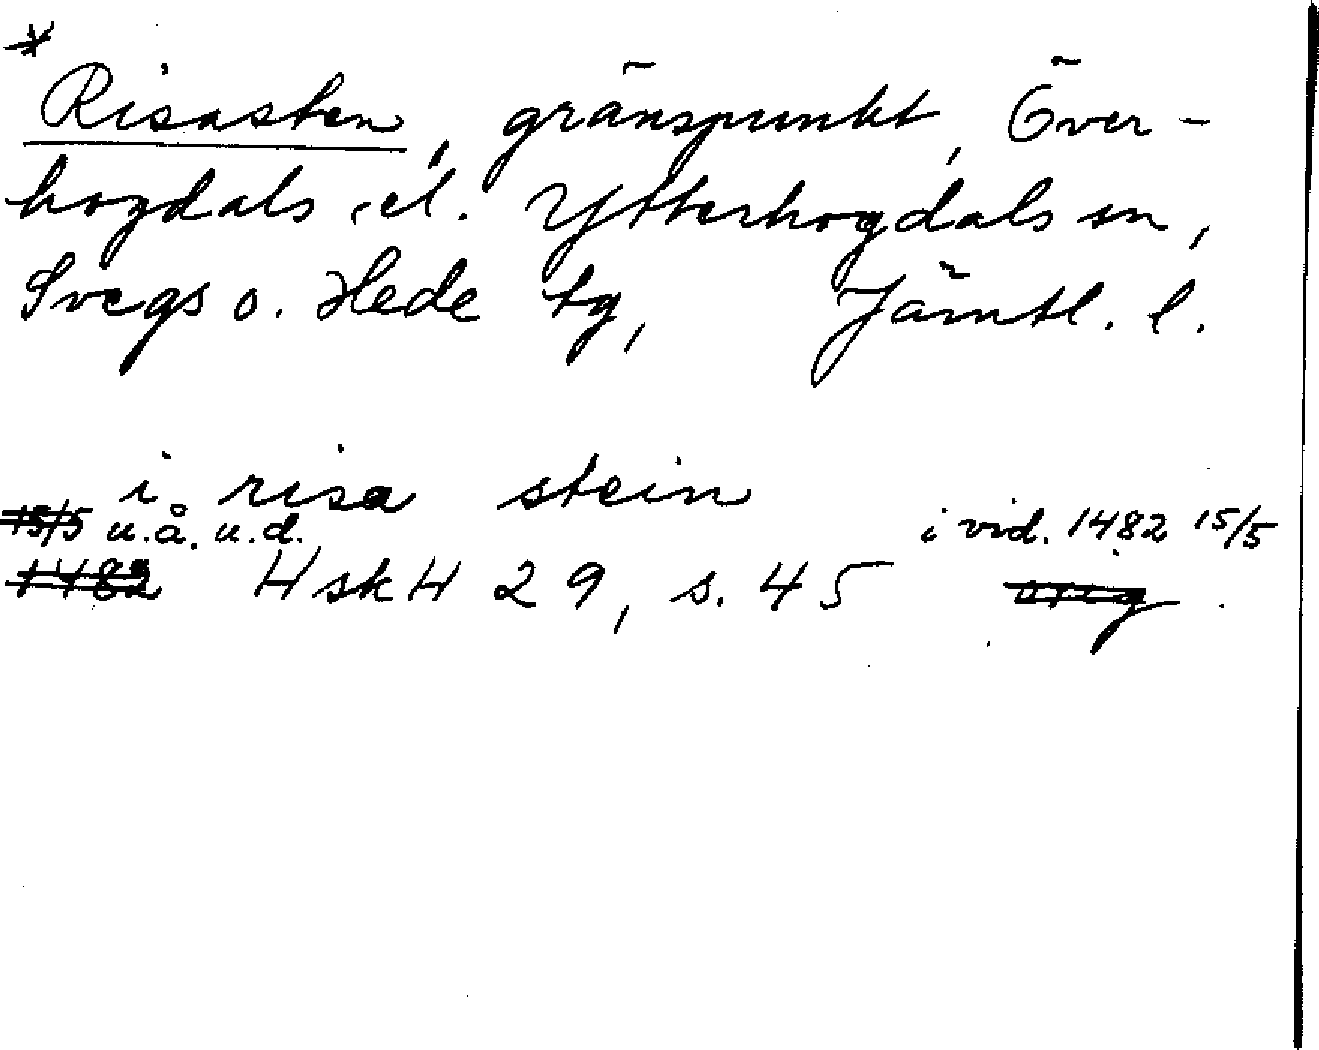 *
Risasten, gränspunkt, Över-
hogdals el. Ytterhogdals sn,
Svegs o. Hede tg, Jämtl. l.
i risa stein
15/5 u.å. u.d. i vid. 1482 15/5
1482 HskH 29, s. 45 orig